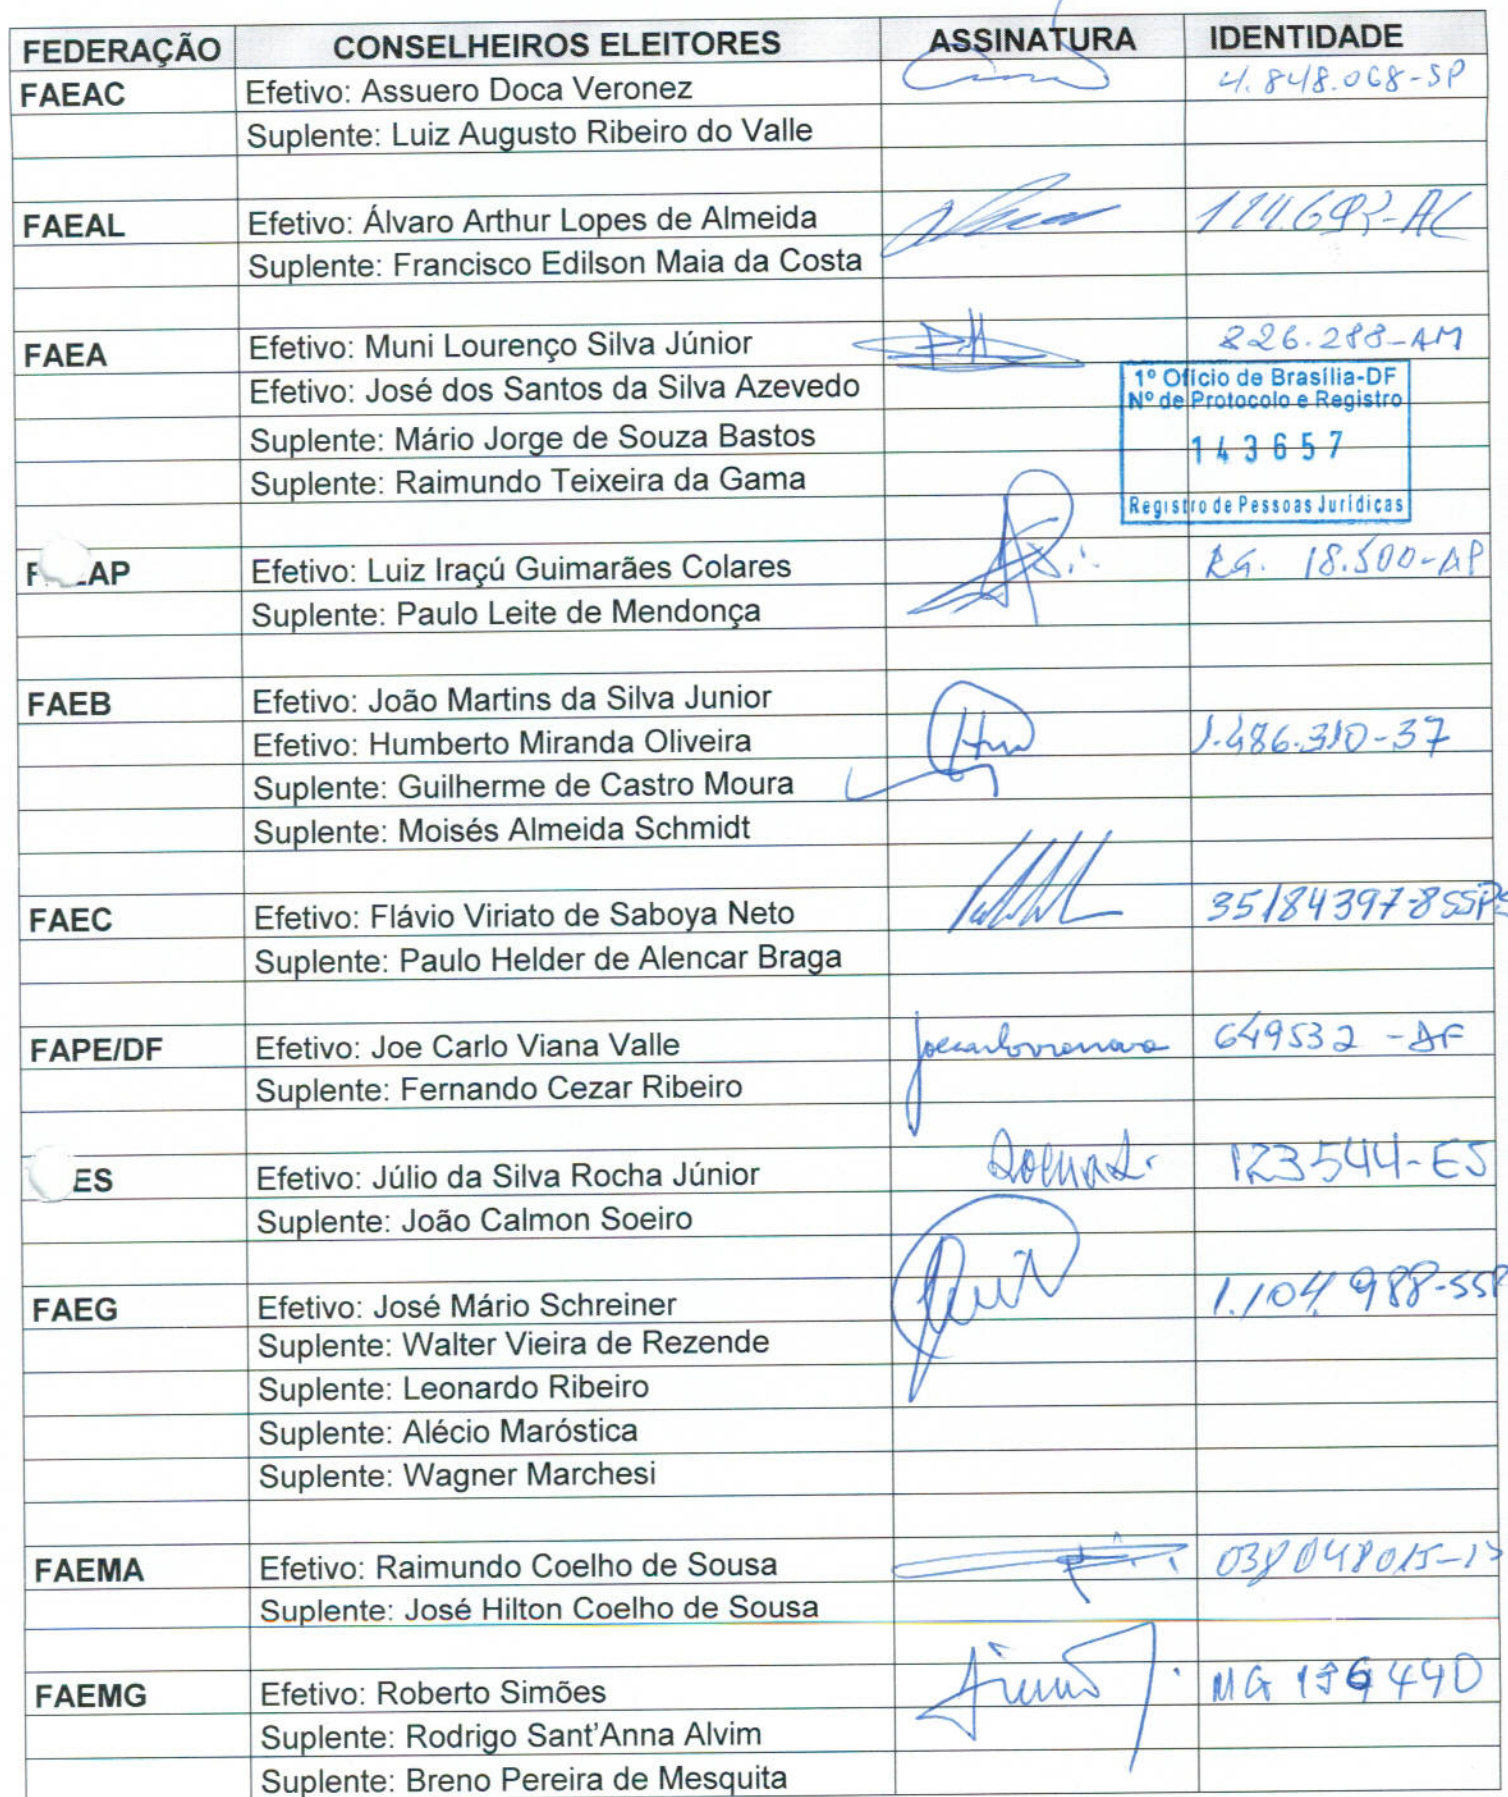 FEDERAÇÃO CONSELHEIROS ELEITORES ASSINATURA IDENTIDADE
FAEAC Efetivo: Assuero Doca Veronez 4.848.068-SP
Suplente: Luiz Augusto Ribeiro do Valle
FAEAL Efetivo: Álvaro Arthur Lopes de Almeida
Suplente: Francisco Edilson Maia da Costa
FAEA Efetivo: Muni Lourenço Silva Júnior 826.288-AM
Efetivo: José dos Santos da Silva Azevedo
1º Ofício de Brasília-DF
Nº de Protocolo e Registro
Suplente: Mário Jorge de Souza Bastos 143657
Suplente: Raimundo Teixeira da Gama
Registro de Pessoas Jurídicas
Efetivo: Luiz Iraçú Guimarães Colares RG. 18.500-AP
Suplente: Paulo Leite de Mendonça
FAEB Efetivo: João Martins da Silva Junior
Efetivo: Humberto Miranda Oliveira 1.486.310-37
Suplente: Guilherme de Castro Moura
Suplente: Moisés Almeida Schmidt
FAEC Efetivo: Flávio Viriato de Saboya Neto 35184397-8 SSPS
Suplente: Paulo Helder de Alencar Braga
FAPE/DF Efetivo: Joe Carlo Viana Valle 649532 -DF
Suplente: Fernando Cezar Ribeiro
ES Efetivo: Júlio da Silva Rocha Júnior 123544-ES
Suplente: João Calmon Soeiro
FAEG Efetivo: José Mário Schreiner 1.104.988-SSP
Suplente: Walter Vieira de Rezende
Suplente: Leonardo Ribeiro
Suplente: Alécio Maróstica
Suplente: Wagner Marchesi
FAEMA Efetivo: Raimundo Coelho de Sousa
Suplente: José Hilton Coelho de Sousa
FAEMG Efetivo: Roberto Simões MG
Suplente: Rodrigo Sant'Anna Alvim
Suplente: Breno Pereira de Mesquita